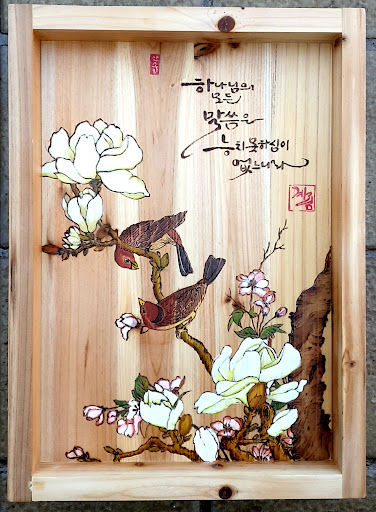 하나님의
모든
말씀은
능치못하심이
없느니라